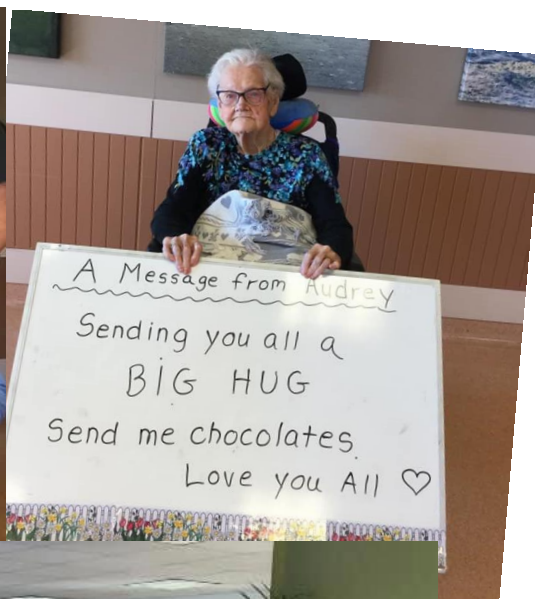 A Message from Audrey
Sending you all a
BIG HUG
Send me chocolates.
Love you All ♡